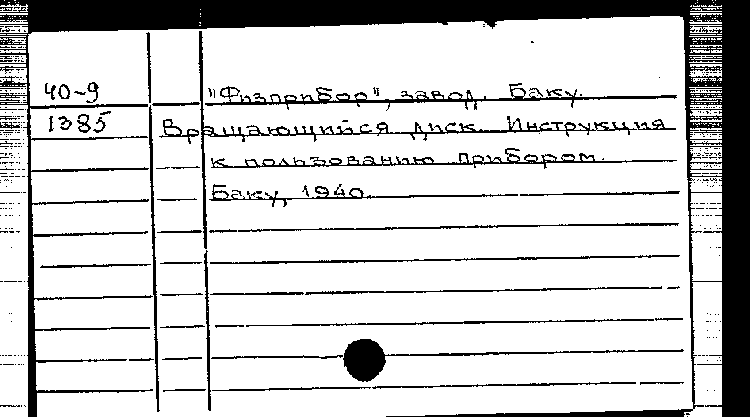 40-9 "Физприбор", завод. Баку.
1385 Вращающийся диск. Инструкция
к пользованию прибором.
Баку, 1940.